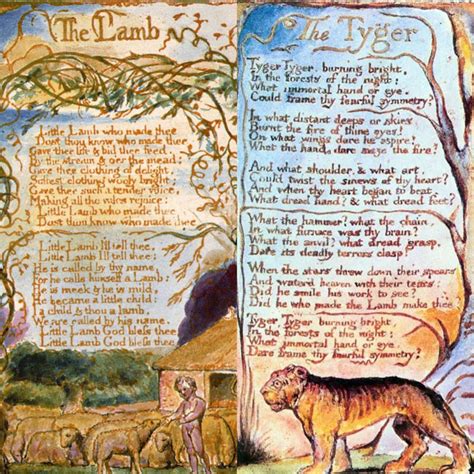 The Lamb
Little Lamb who made thee
Dost thou know who made thee
Gave thee life & bid thee feed.
By the stream & o'er the mead;
Gave thee clothing of delight,
Softest clothing wooly bright;
Gave thee such a tender voice,
Making all the vales rejoice:
Little Lamb who made thee
Dost thou know who made thee
Little Lamb I'll tell thee,
Little Lamb I'll tell thee;
He is called by thy name,
For he calls himself a Lamb:
He is meek & he is mild,
He became a little child:
I a child & thou a lamb,
We are called by his name.
Little Lamb God bless thee.
Little Lamb God bless thee.
The Tyger
Tyger Tyger, burning bright,
In the forests of the night:
What immortal hand or eye,
Could frame thy fearful symmetry?
In what distant deeps or skies,
Burnt the fire of thine eyes!
On what wings dare he aspire?
What the hand, dare sieze the fire?
And what shoulder, & what art,
Could twist the sinews of thy heart?
And when thy heart began to beat,
What dread hand? & what dread feet?
What the hammer? what the chain,
In what furnace was thy brain?
What the anvil? what dread grasp,
Dare its deadly terrors clasp!
When the stars threw down their spears
And water'd heaven with their tears:
Did he smile his work to see?
Did he who made the Lamb make thee
Tyger Tyger burning bright,
In the forests of the night:
What immortal hand or eye,
Dare frame thy fearful symmetry?